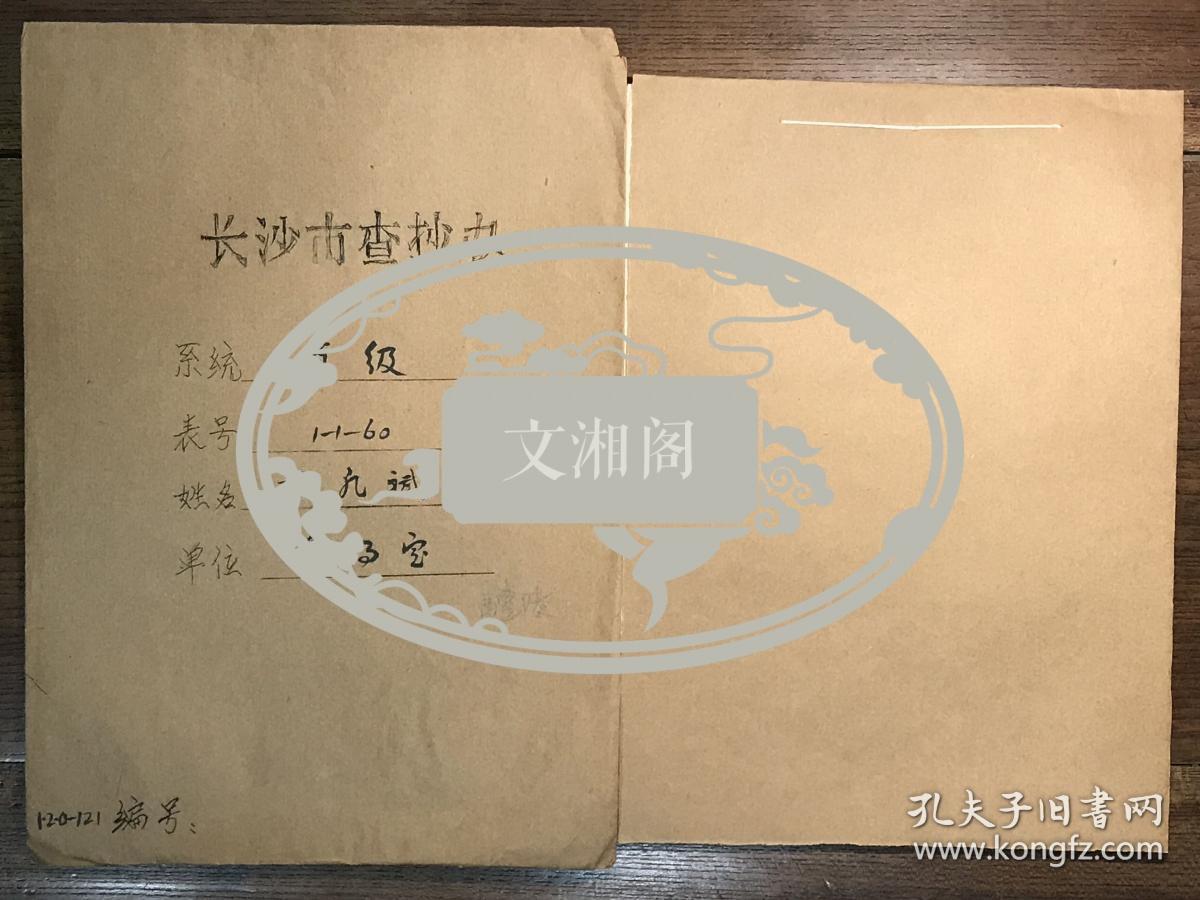 长沙市查抄办
系统 级
表号 1-1-60
姓名 九斌
单位 室
1-20-121 编号：
文湘阁
孔夫子旧書网
www.kongfz.com